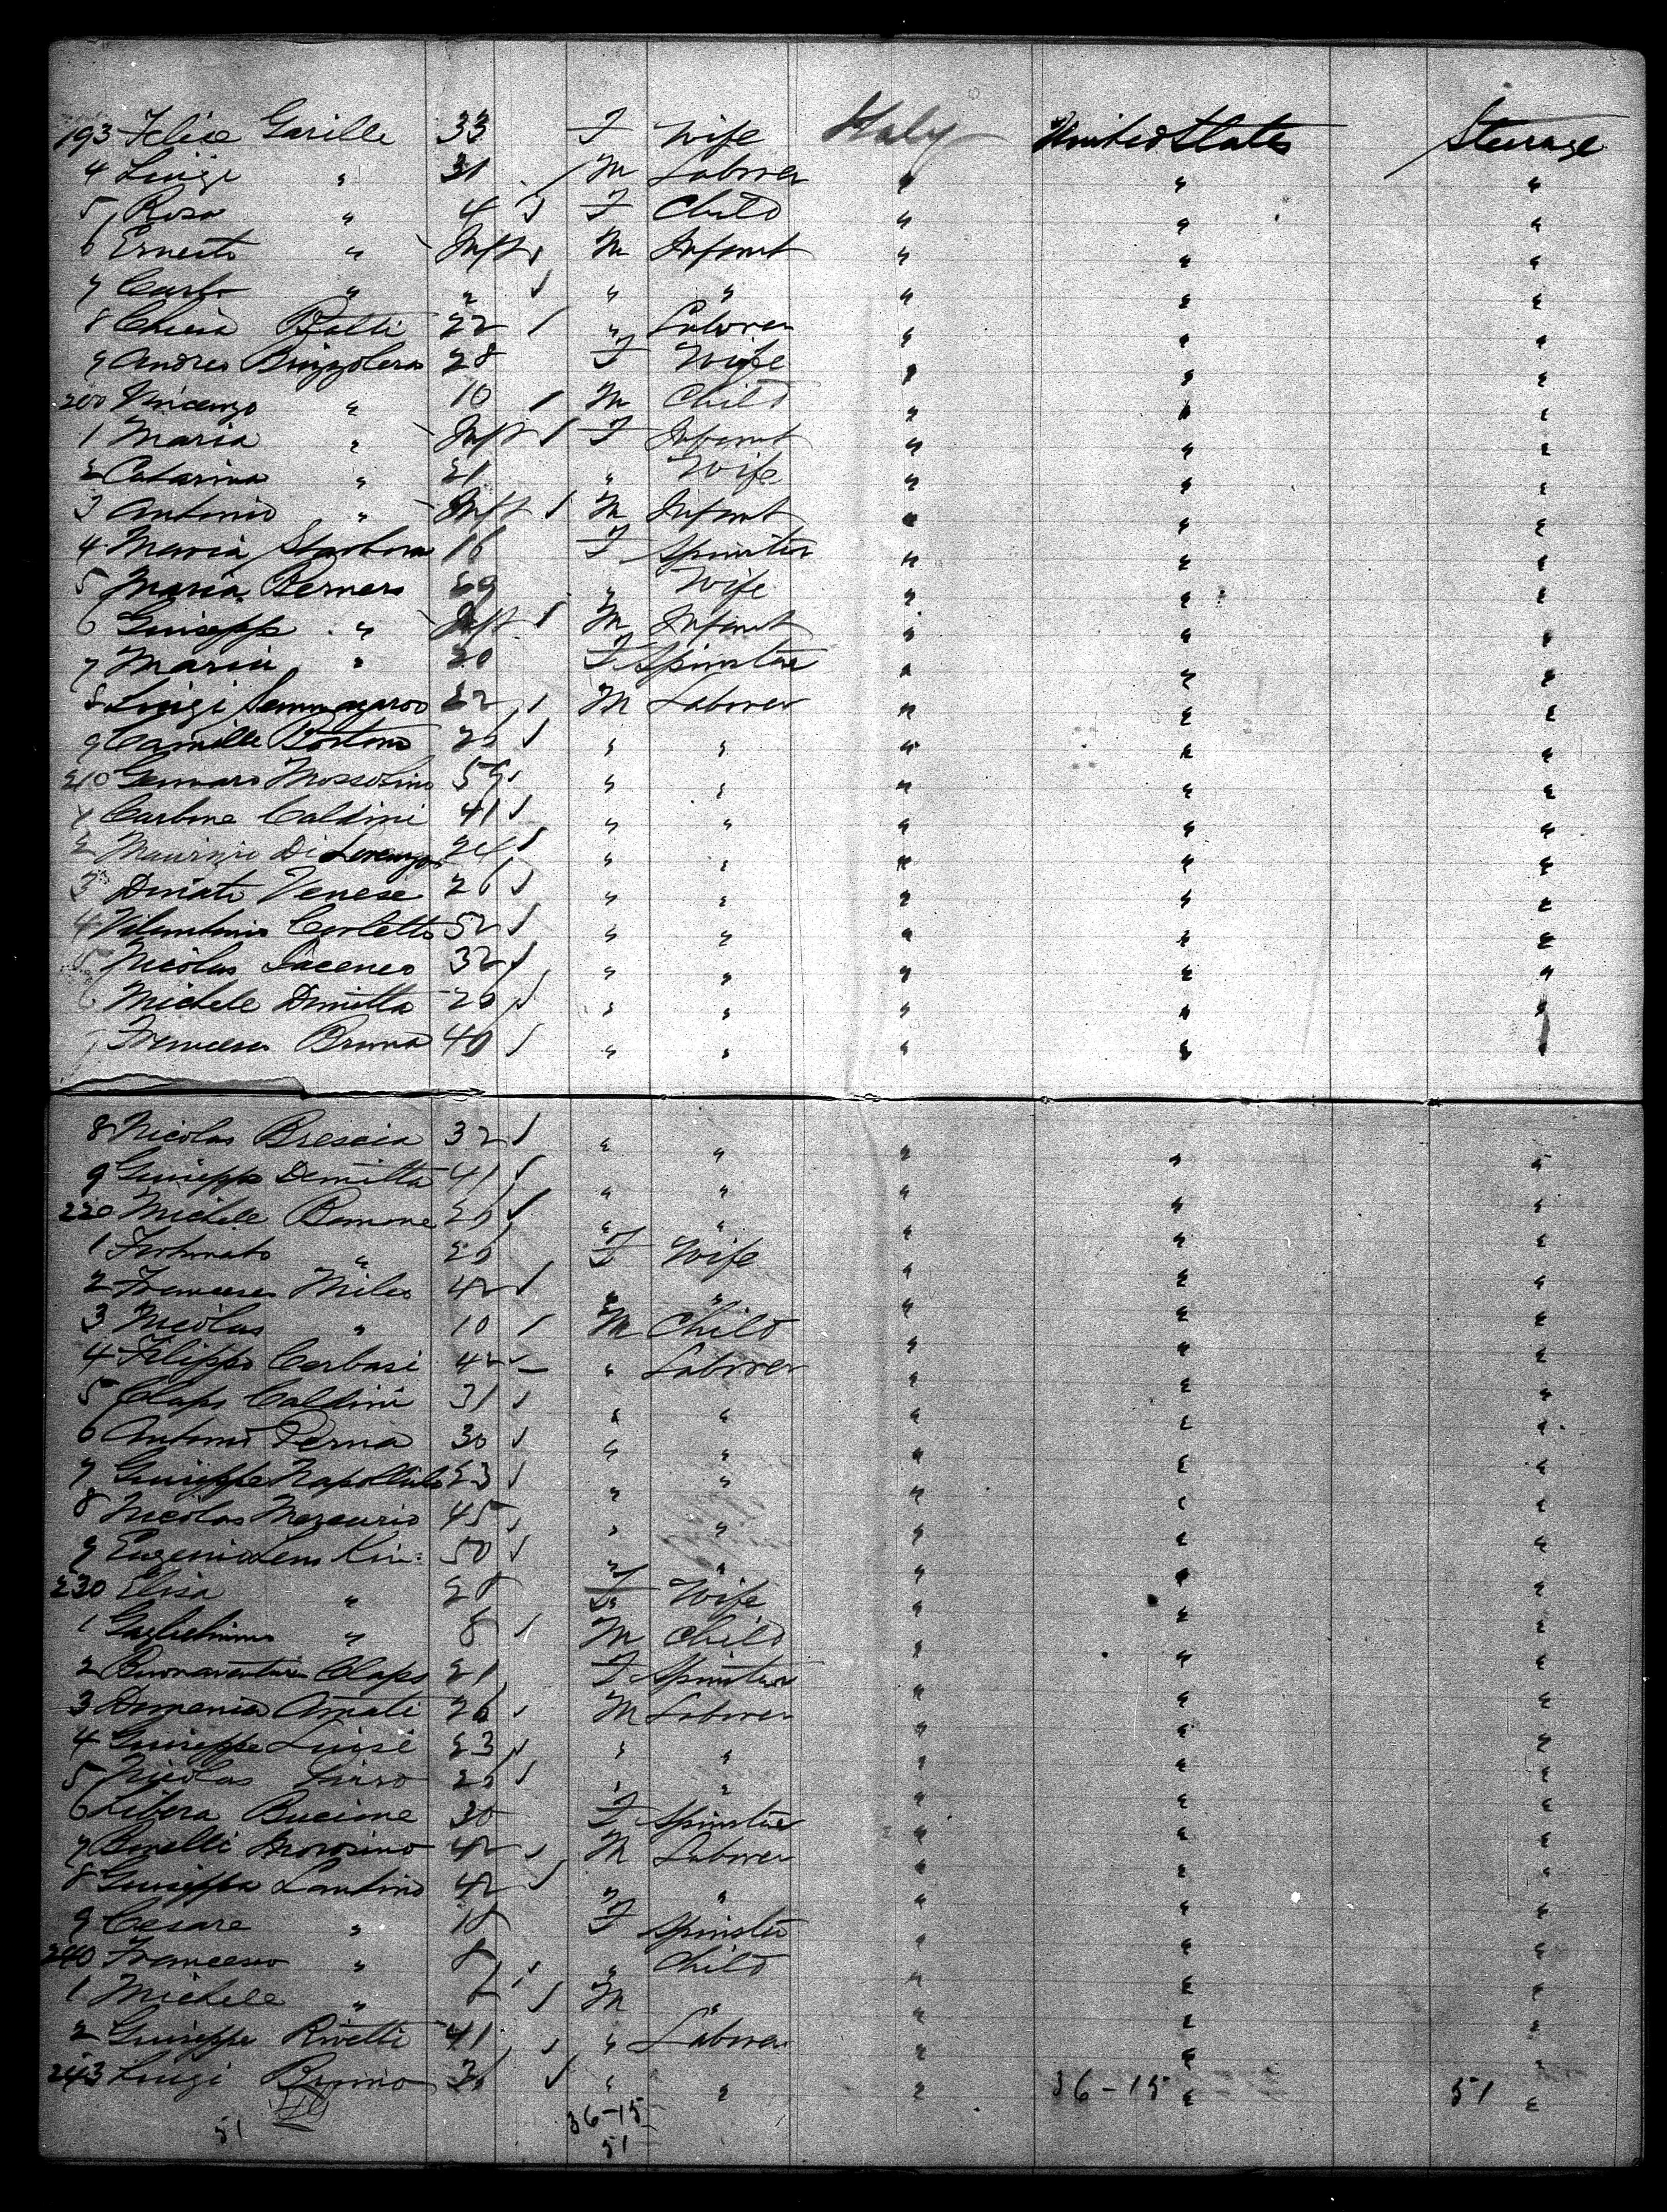 193 Felice Garille 33 F Wife Italy United States Steerage
4 Luigi " 31 M Laborer " " "
5 Rosa " 4 F Child " " "
6 Ernesto " Inft M Infant " " "
7 Carlo " " " " " " "
8 Chiesa Batti 22 " Laborer " " "
9 Andrea 28 F Wife " " "
200 Vincenzo " 10 M Child " " "
1 Maria " Inft F Infant " " "
2 Catarina " 21 " Wife " " "
3 Antonio " Inft M Infant " " "
4 Maria 16 F Spinster " " "
5 Maria Perners 29 " Wife " " "
6 Guisepp " Inft M Infant " " "
7 Maria " 20 F Spinster " " "
8 Luigi 22 M Laborer " " "
9 Camille Bostono 26 " " " " "
210 Gennaro Mossolino 59 " " " " "
1 Carbone Caldini 41 " " " " "
2 Maurizio Di Lorenzo 24 " " " " "
3 Donato Venese 26 " " " " "
4 Carletto 52 " " " " "
5 Nicolas 32 " " " " "
6 Michele Dimitta 20 " " " " "
7 Francesco Bruna 40 " " " " "
8 Nicolas Brescia 32 " " " " "
9 Guisepp Dimitta 41 " " " " "
220 Michele Bamone 26 " " " " "
1 Fortunato " 26 F Wife " " "
2 Francesco Mileo 42 " " " " "
3 Nicolas " 10 M Child " " "
4 Filippo Carbasi 42 " Laborer " " "
5 Claps Caldini 31 " " " " "
6 Antoni Perna 30 " " " " "
7 Guiseppe 23 " " " " "
8 Nicolas Mercurio 45 " " " " "
9 Eugenio 50 " " " " "
230 Elisa " 28 F Wife " " "
1 Guglielmino " 8 M Child " " "
2 Buonaventura Claps 21 F Spinster " " "
3 Domenica Amati 26 M Laborer " " "
4 Guiseppe Luise 23 " " " " "
5 Nicolas 26 " " " " "
6 Libera Bucione 30 F Spinster " " "
7 Borelli 42 M Laborer " " "
8 Guiseppa Lantino 42 " " " " "
9 Cesare " 18 F Spinster " " "
240 Francesco " 8 " Child " " "
1 Michele " M " " " "
2 Guiseppe Rivetti 41 " Laborer " " "
243 Luigi Bruno 36 " " " 36-15 " 51 "
51 36-15
51